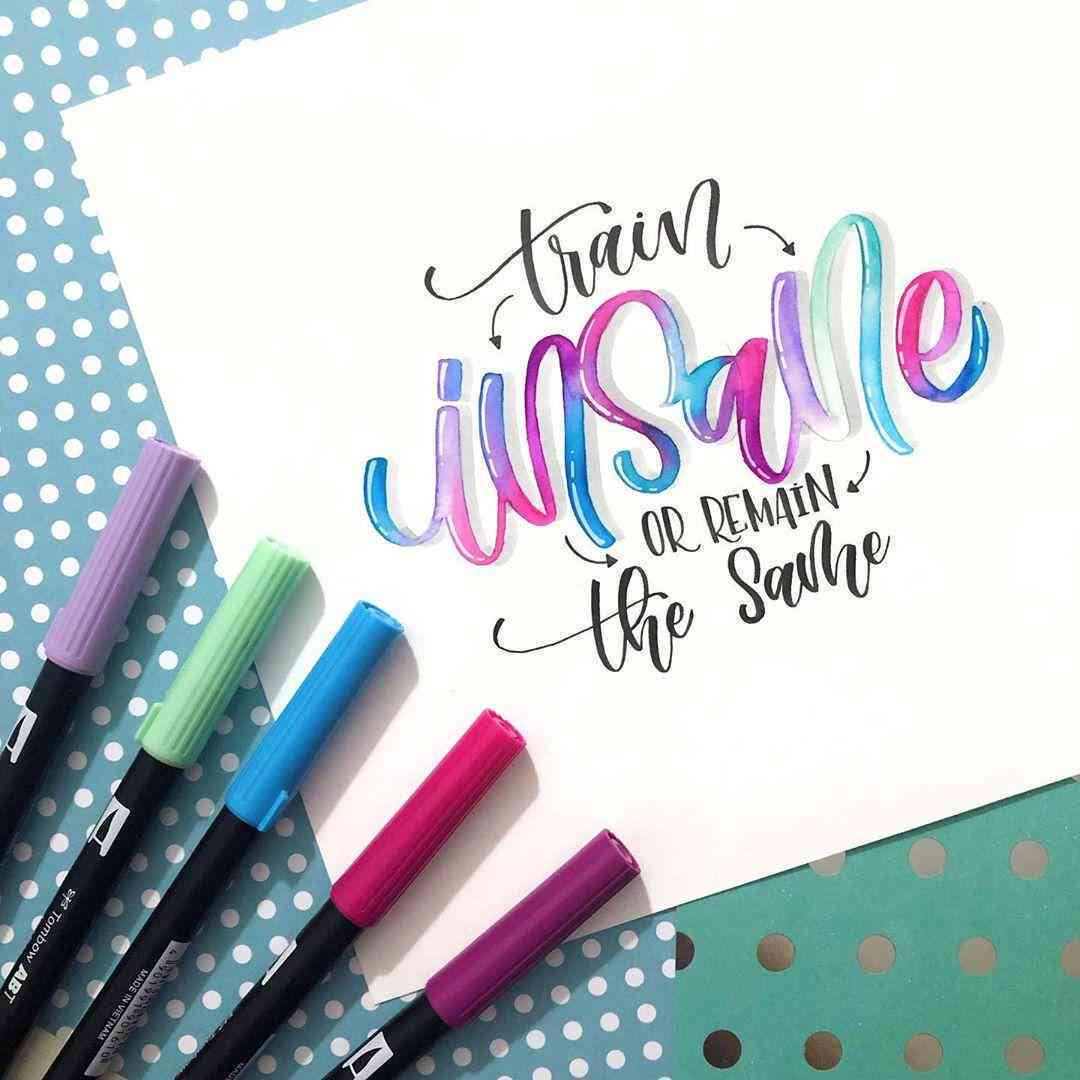 train
insane
OR REMAIN
the same
Tombow ABT
MADE IN VIETNAM